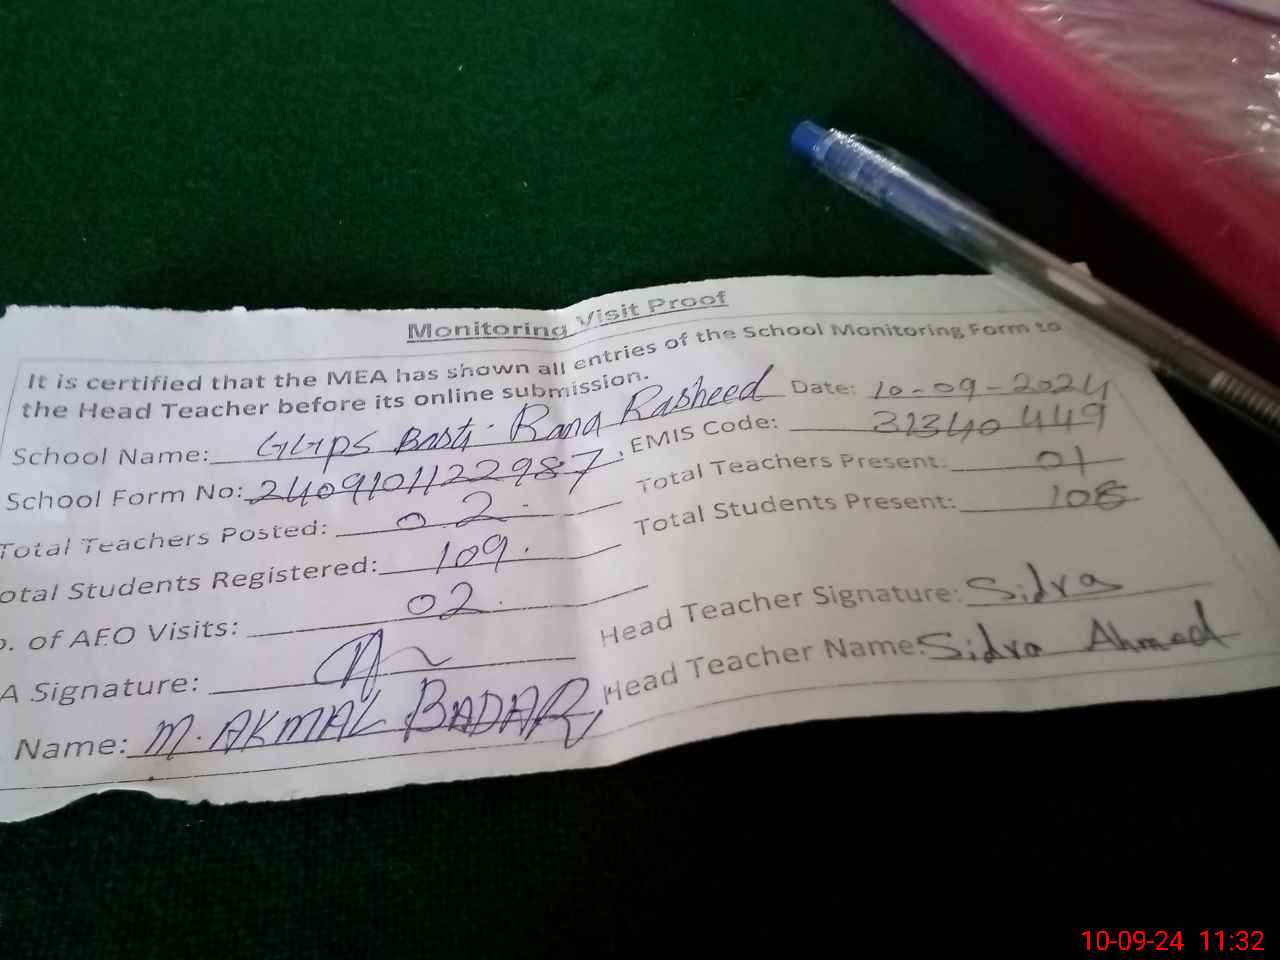 Monitoring Visit Proof
It is certified that the MEA has shown all entries of the School Monitoring Form to
the Head Teacher before its online submission.
School Name: GGPS Basti Rana Rasheed Date: 10-09-2024
School Form No: 2409101122987, EMIS Code: 31340449
Total Teachers Posted: 02. Total Teachers Present: 01
otal Students Registered: 109. Total Students Present: 108
o. of AEO Visits: 02.
A Signature: Head Teacher Signature: Sidra
Name: M. AKMAL BADAR, Head Teacher Name: Sidra Ahmed
10-09-24 11:32